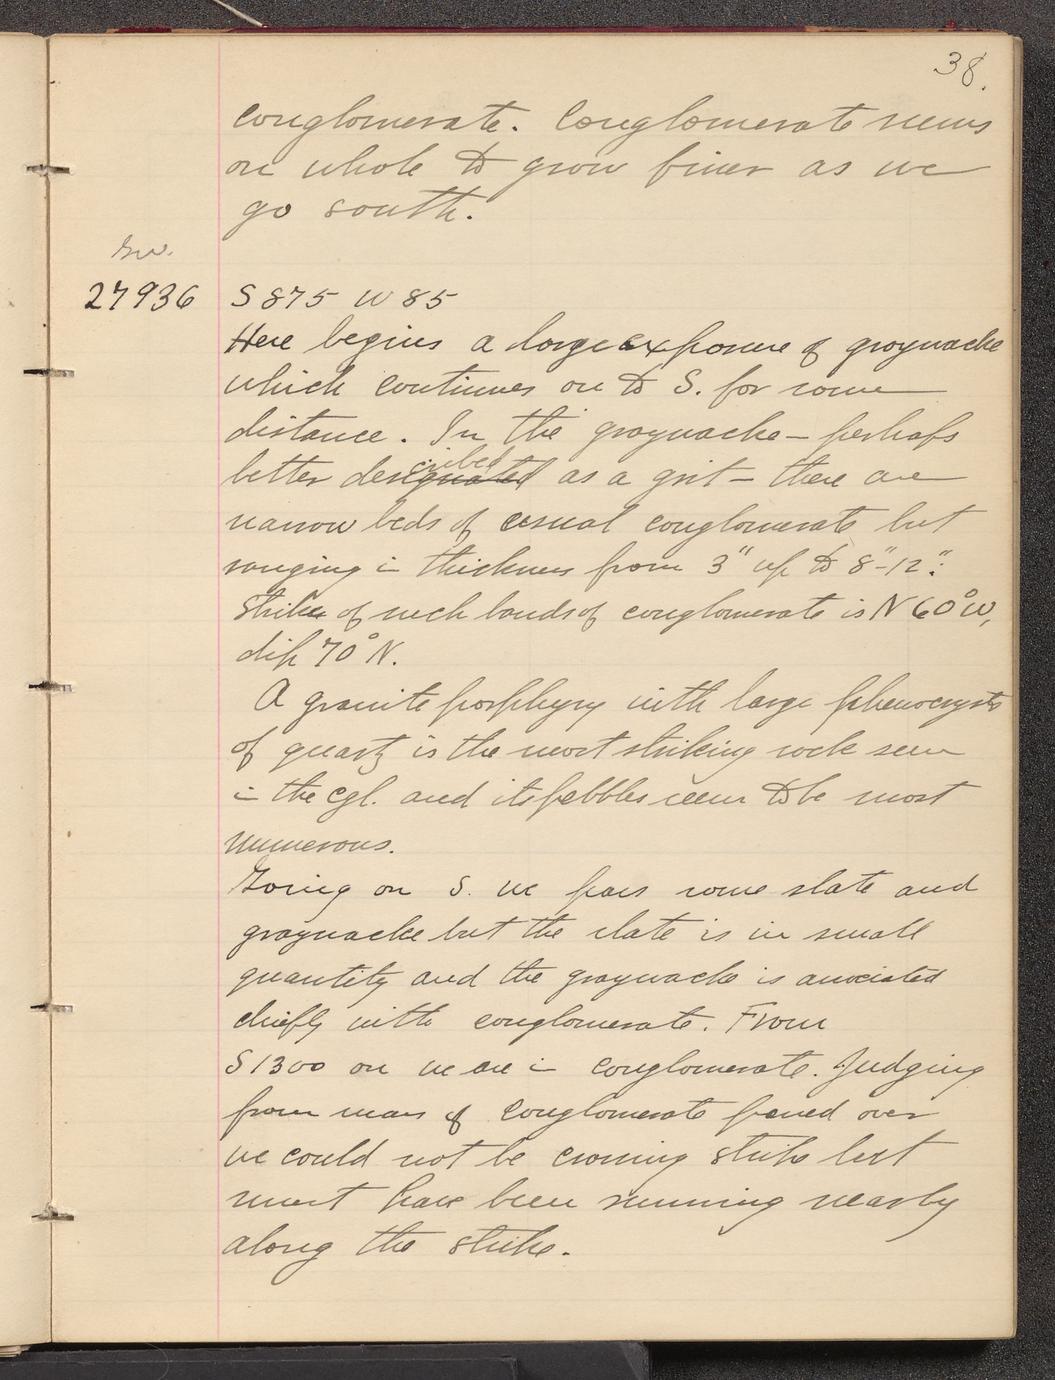 38.
conglomerate. Conglomerate seems
on whole to grow finer as we
go south.
Gw.
27936 S 875 W 85
Here begins a large exposure of graywacke
which continues on to S. for some
distance. In the graywacke – perhaps
better designated cribed as a grit – there are
narrow beds of usual conglomerate but
ranging in thickness from 3" up to 8-12".
Strike of such bands of conglomerate is N 60° W,
dip 70° N.
A granite porphyry with large phenocrysts
of quartz is the most striking rock seen
in the cgl. and its pebbles seem to be most
numerous.
Going on S. we pass some slate and
graywacke but the slate is in small
quantity and the graywacke is associated
chiefly with conglomerate. From
S 1300 on we are in conglomerate. Judging
from mass of conglomerate passed over
we could not be crossing strike but
must have been running nearly
along the strike.